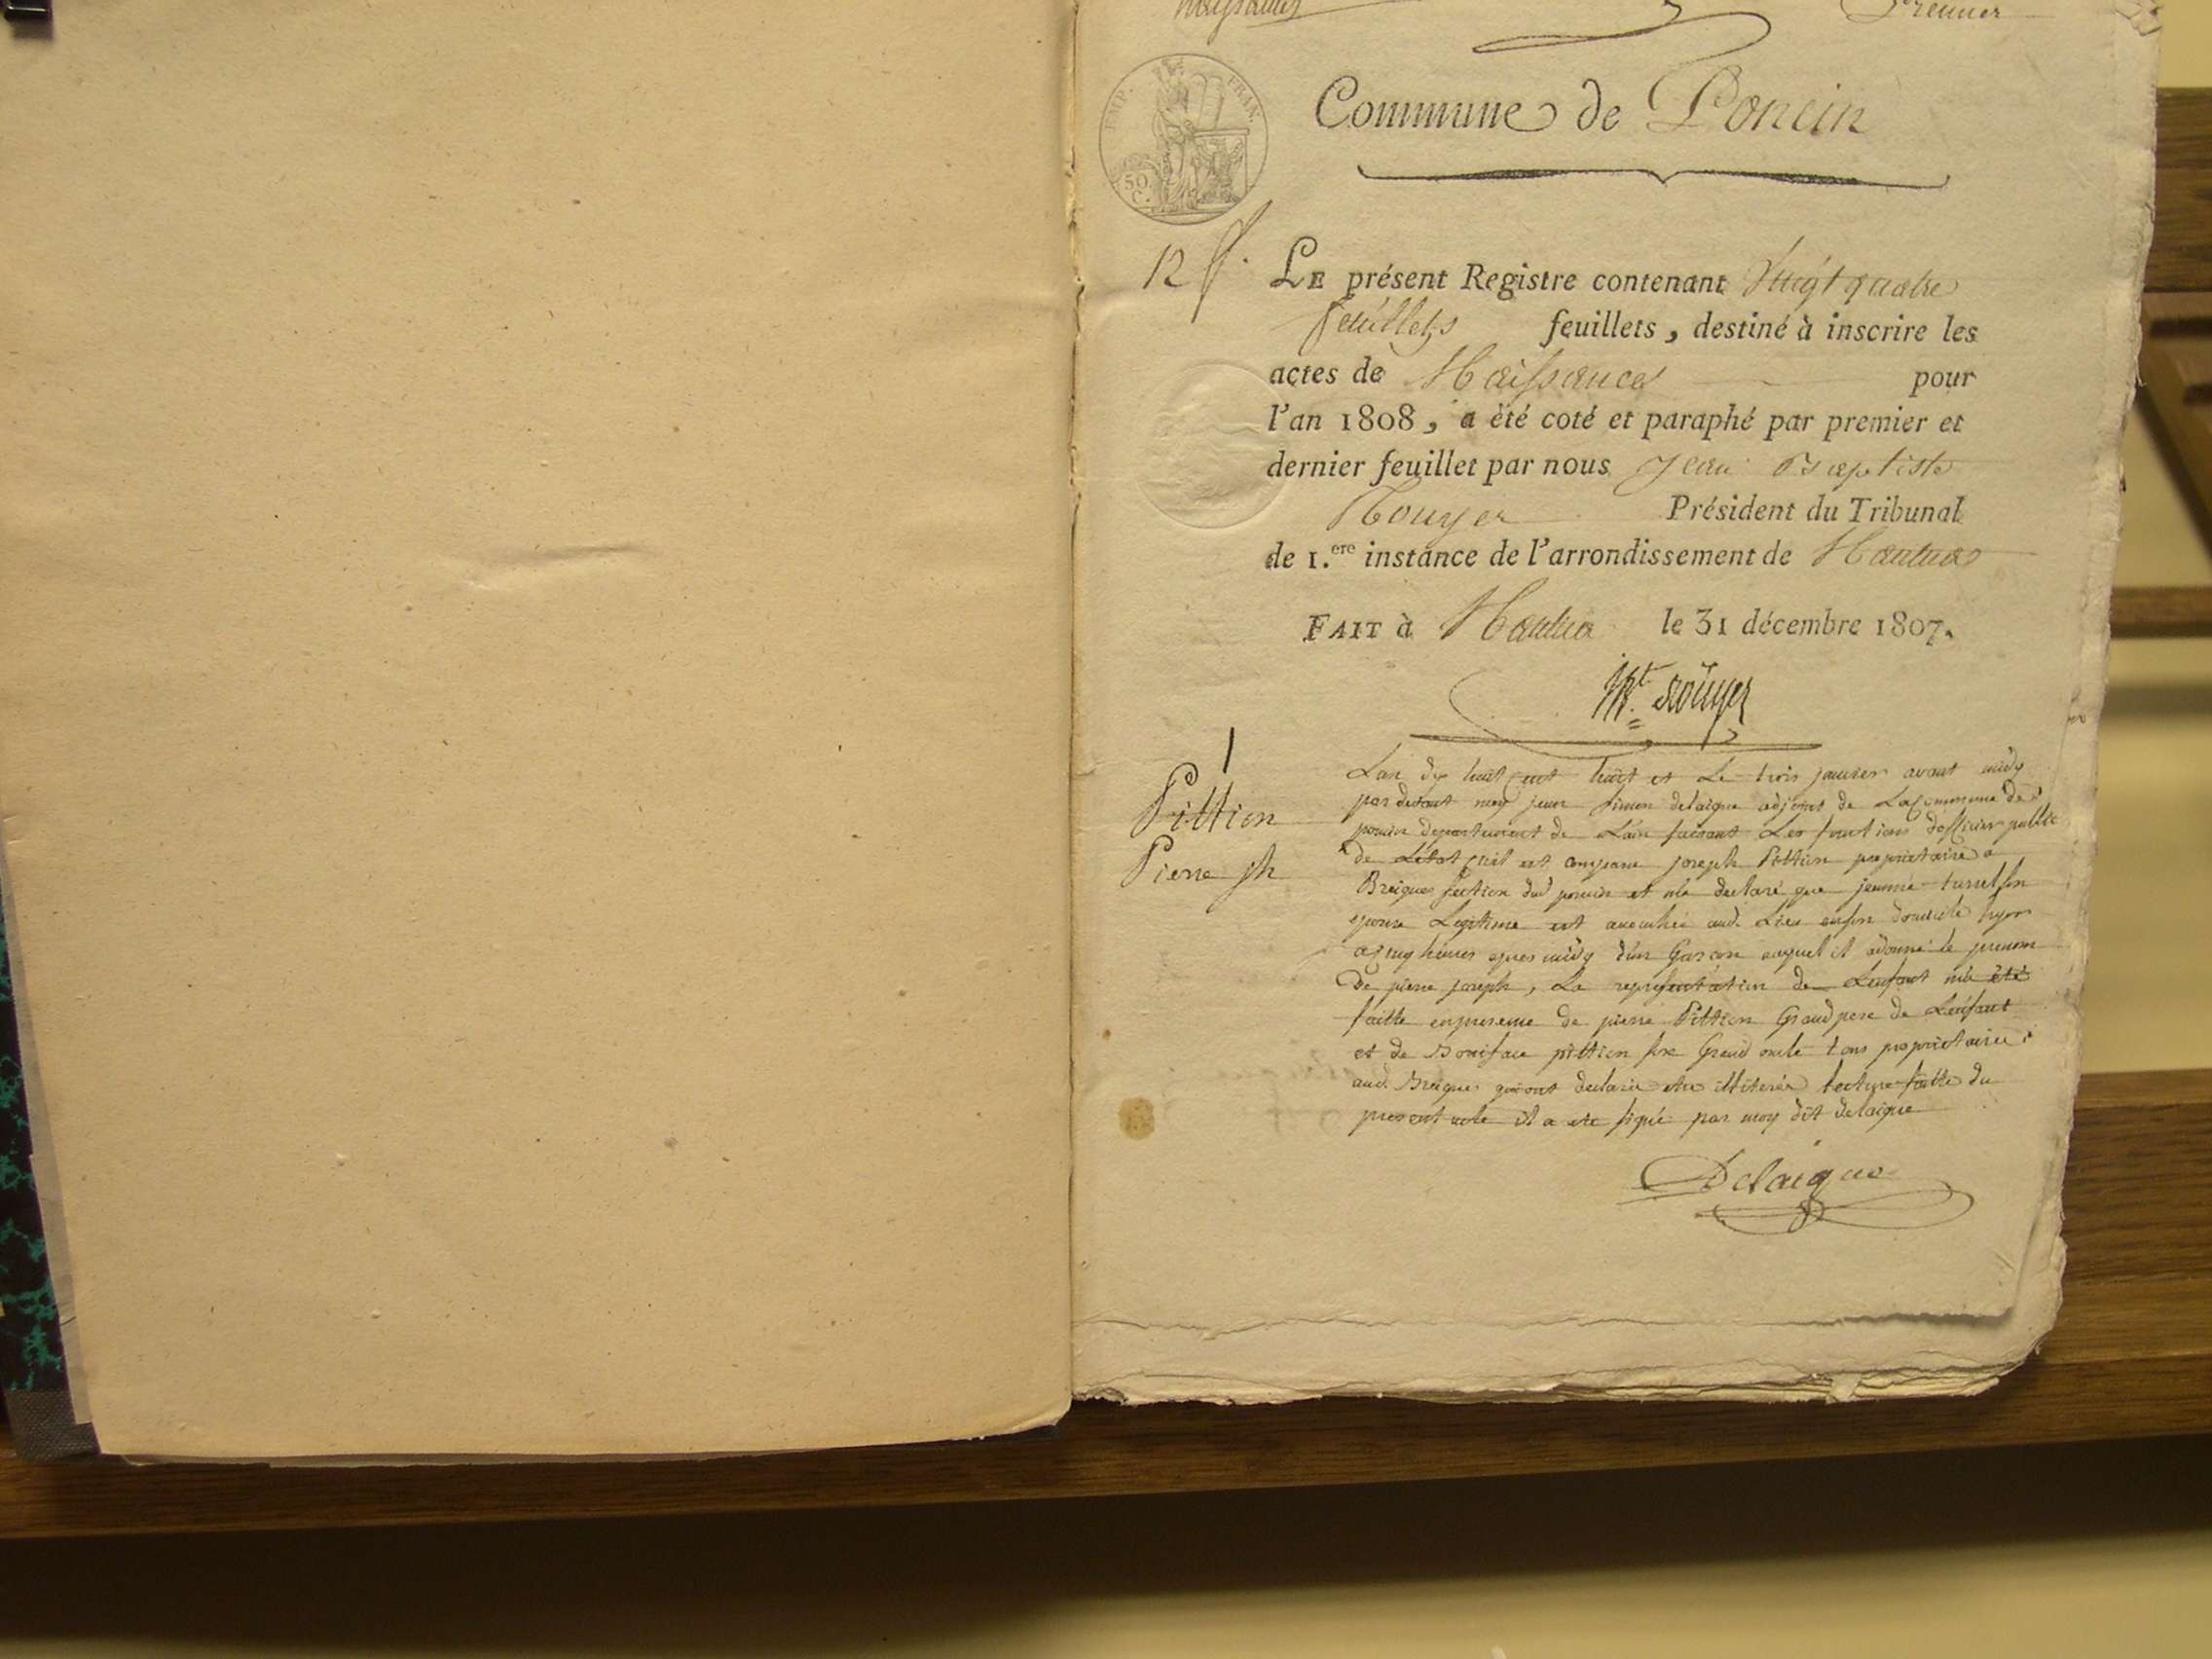 Premier
EMP. FRAN.
50 C.
Commune de Poncin
12 f.
LE présent Registre contenant Vingt quatre
feuillets feuillets, destiné à inscrire les
actes de Naissances pour
l'an 1808, a été coté et paraphé par premier et
dernier feuillet par nous Jean Baptiste
Rouyer Président du Tribunal
de 1.ere instance de l'arrondissement de Nantua
FAIT à Nantua le 31 décembre 1807.
Rouyer
1
Pittion
Pierre jh
Lan dix huit cent huit et Le trois janvier avant midy
par devant moy jean simon delaigue adjoint de La Commune de
poncin departement de Lain faisant Les fonctions dofficier public
de Letat civil est comparu joseph Pittion proprietaire a
Breignes section dud poncin et ma declaré que jeanne turrel son
epouse Legitime est accouchée aud. Lieu en son domicile hyer
a cinq heures apres midy d'un Garcon auquel il a donné le prenom
De pierre joseph, La representation de Lenfant ma été
faitte en presence de pierre Pittion Grand pere de Lenfant
et de Boniface pittion son Grand oncle tous proprietaires
aud. Breignes qui ont declaré etre illiterés lecture faitte du
present acte il a ete signé par moy dit delaigue
Delaigue